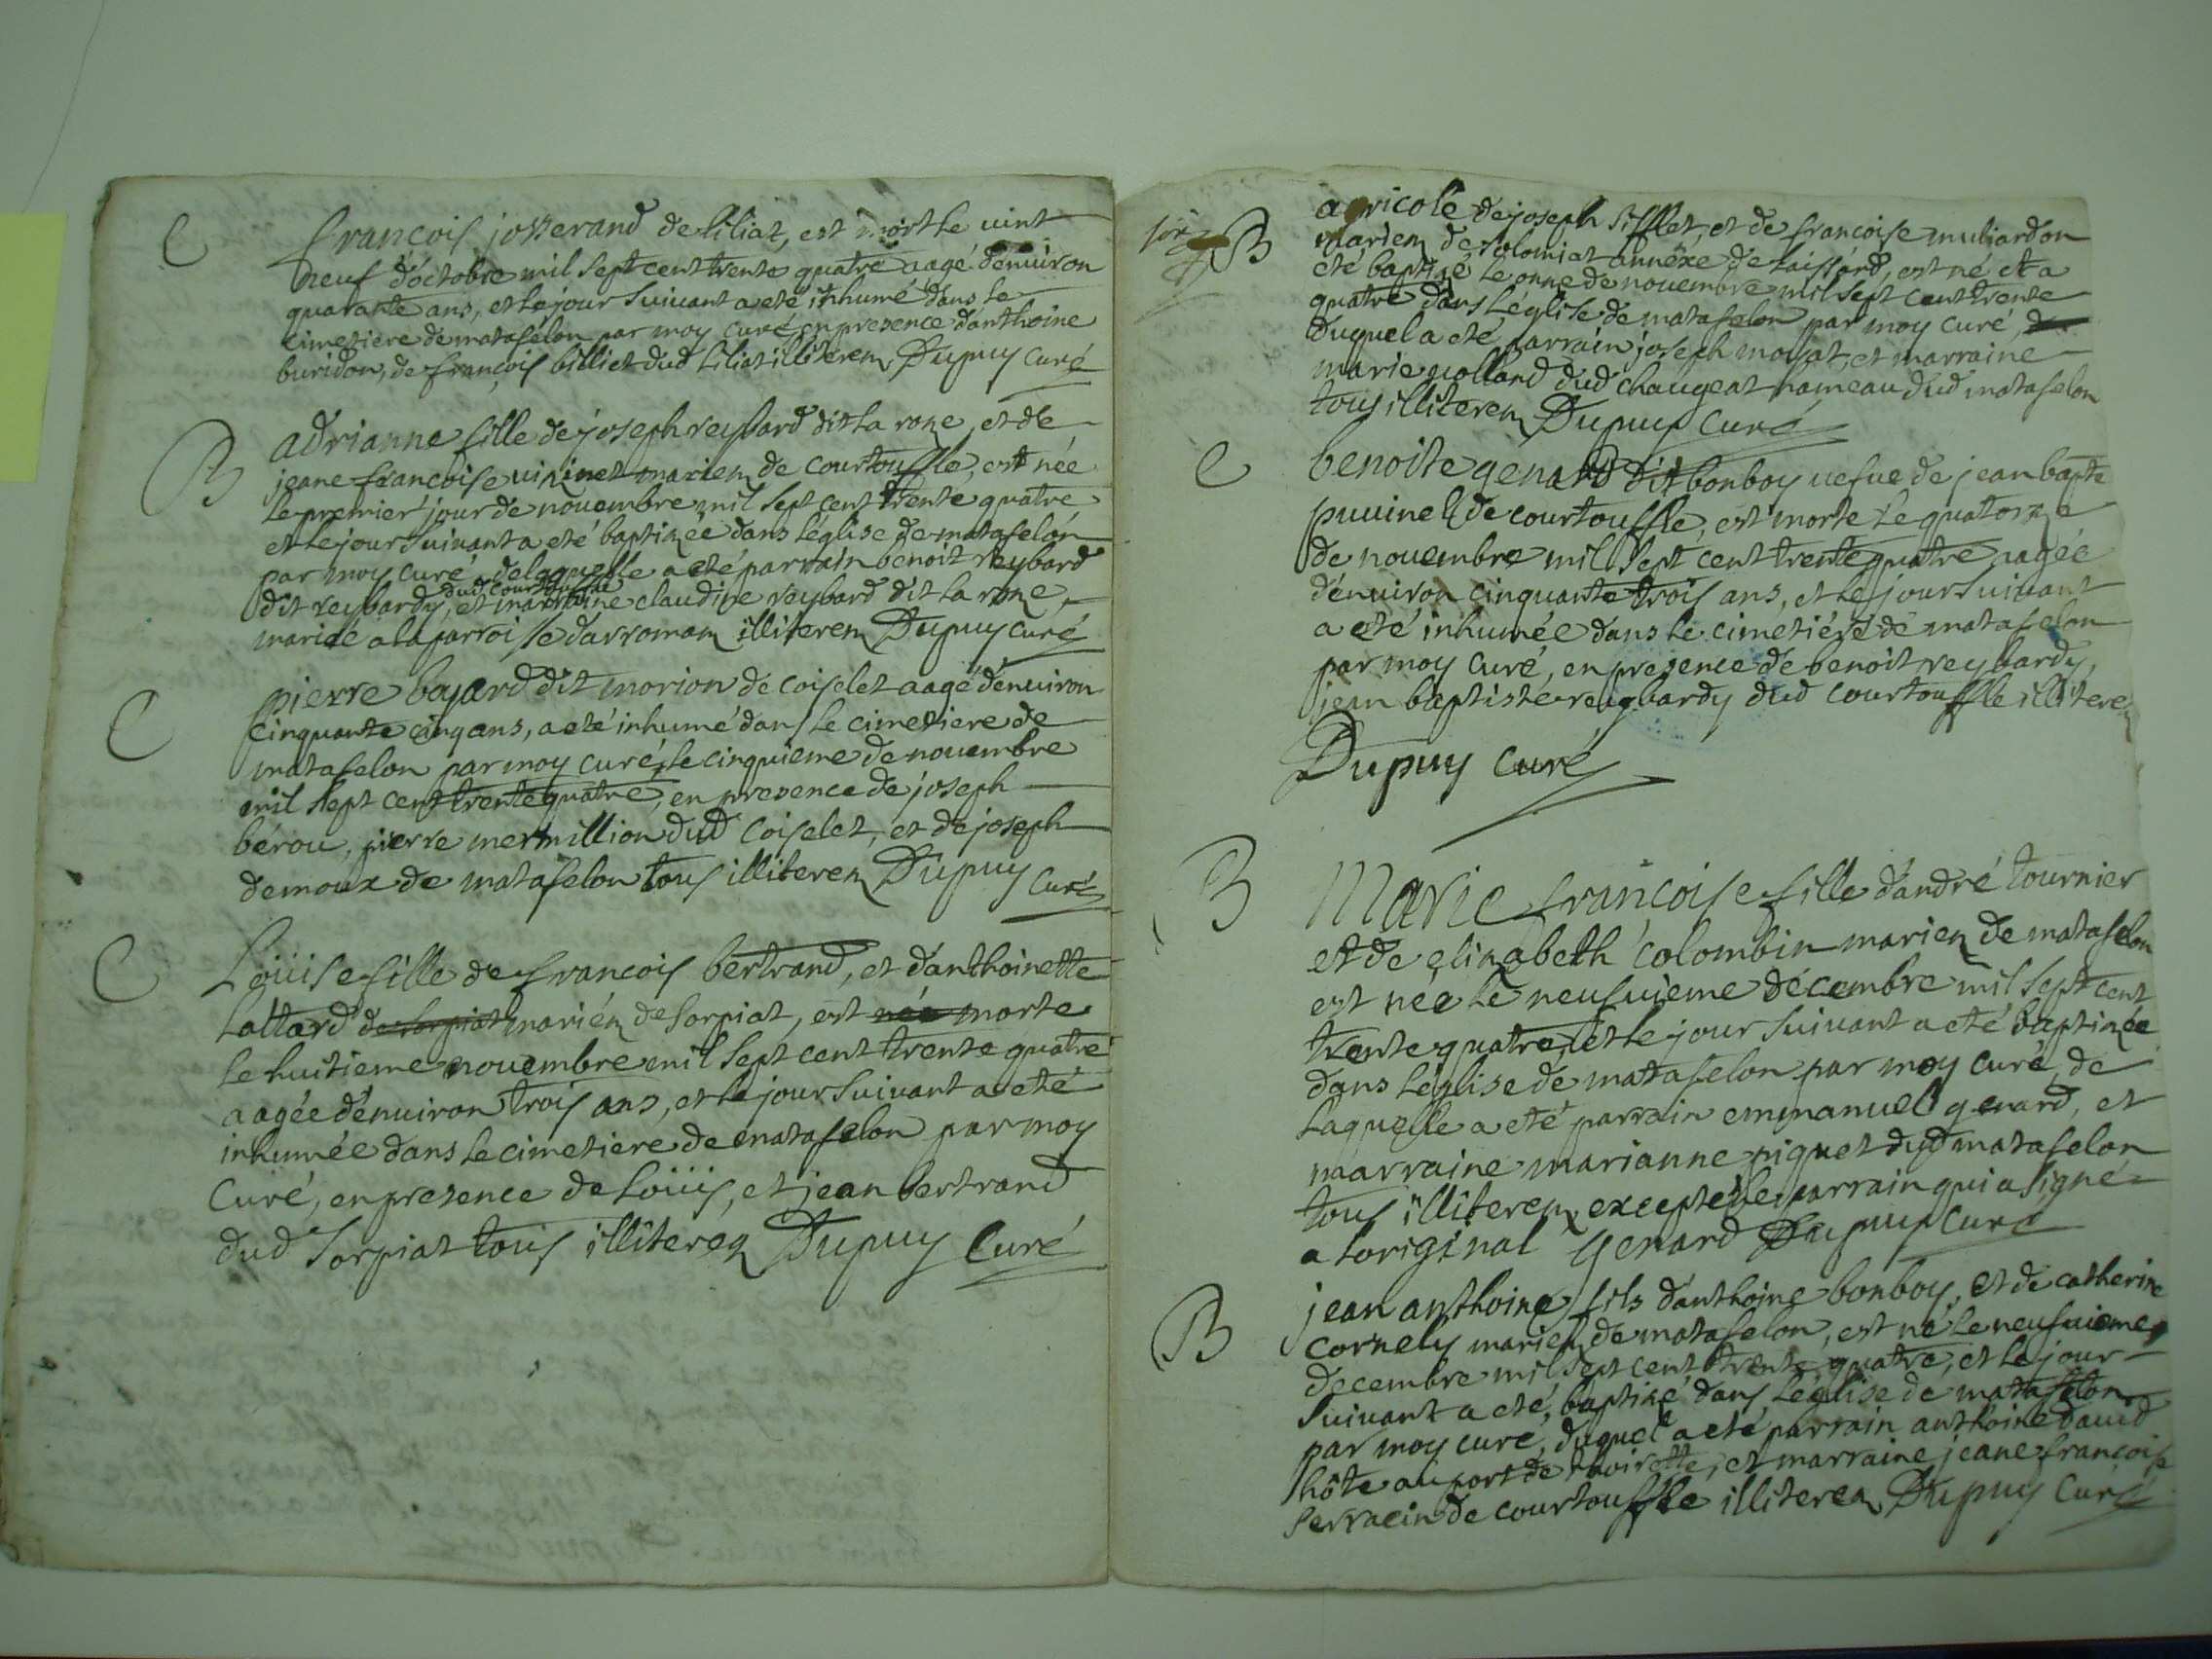 C
francois josserand de liliat, est mort le uint
neuf d'octobre mil sept cent trente quatre aagé d'enuiron
quarante ans, et le jour suiuant a eté inhumé dans le
cimetiere de matafelon par moy curé, en presence d'anthoine
buridon, de françois billiet dud liliat illiterez Dupuy curé
B
adrianne fille de joseph reybard dit la roze, et de
jeane francoise uizinet mariez de courtouffle, est née
le premier jour de nouembre mil sept cent trente quatre
et le jour suiuant a eté baptizée dans l'église de matafelon
par moy curé, de laquelle a eté parrain benoit reybard
dud courtouffle
dit reybardy, et marraine claudine reybard dit la roze,
mariée a la parroisse d'arromaz illiterez Dupuy curé
C
pierre bayard dit morion de coiselet aagé d'enuiron
cinquante cinq ans, a eté inhumé dans le cimetiere de
matafelon par moy curé, le cinquieme de nouembre
mil sept cent trente quatre, en presence de joseph
bérou, pierre mermillion dud coiselet, et de joseph
demoux de matafelon tous illiterez Dupuy curé
C
Loüise fille de francois bertrand, et d'anthoinette
Lattard de sorpiat mariéz de sorpiat, est née morte
le huitieme nouembre mil sept cent trente quatre
aagée d'enuiron trois ans, et le jour suiuant a eté
inhumée dans le cimetiere de matafelon par moy
Curé, en presence de Loüis, et jean bertrand
dud sorpiat tous illiterez Dupuy Curé
B
agricole de joseph sifflet, et de francoise muliardon
mariez de solomiat annéxe de laissard, est né et a
eté baptizé le onze de nouembre mil sept cent trente
quatre dans l'église de matafelon par moy curé,
duquel a eté parrain joseph moysat, et marraine
marie uolland dud chaugeat hameau dud matafelon
tous illiterez Dupuy curé
C
benoite genard dit bonboy uefue de jean bapte
puuinel de courtouffle, est morte le quatorze
de nouembre mil sept cent trente quatre aagée
d'enuiron cinquante trois ans, et le jour suiuant
a eté inhumée dans le cimetiére de matafelon
par moy curé, en presence de benoit reybardy,
jean baptiste reybardy dud courtouffle illiterez
Dupuy curé
B
Marie françoise fille d'andré tournier
et de elizabeth colombin mariez de matafelon
est née le neufuieme décembre mil sept cent
trente quatre, et le jour suiuant a eté baptizée
dans l'église de matafelon par moy curé, de
laquelle a eté parrain emmanuel genard, et
marraine marianne piquet dud matafelon
tous illiterez excepté le parrain qui a signé
a l'original Genard Dupuy curé
B
jean anthoine fils d'anthoine bonboy, et de catherine
cornely mariez de matafelon, est né le neufuieme
decembre mil sept cent trente quatre, et le jour
suiuant a eté baptizé dans l'église de matafelon
par moy curé, duquel a eté parrain anthoine dauid
hôte au port de thoirette, et marraine jeane françoise
serracin de courtouffle illiterez Dupuy Curé